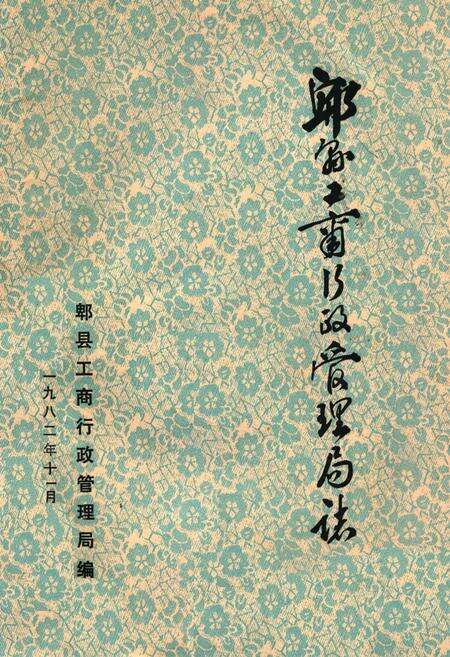 郫县工商行政管理局誌
郫县工商行政管理局编
一九八二年十一月